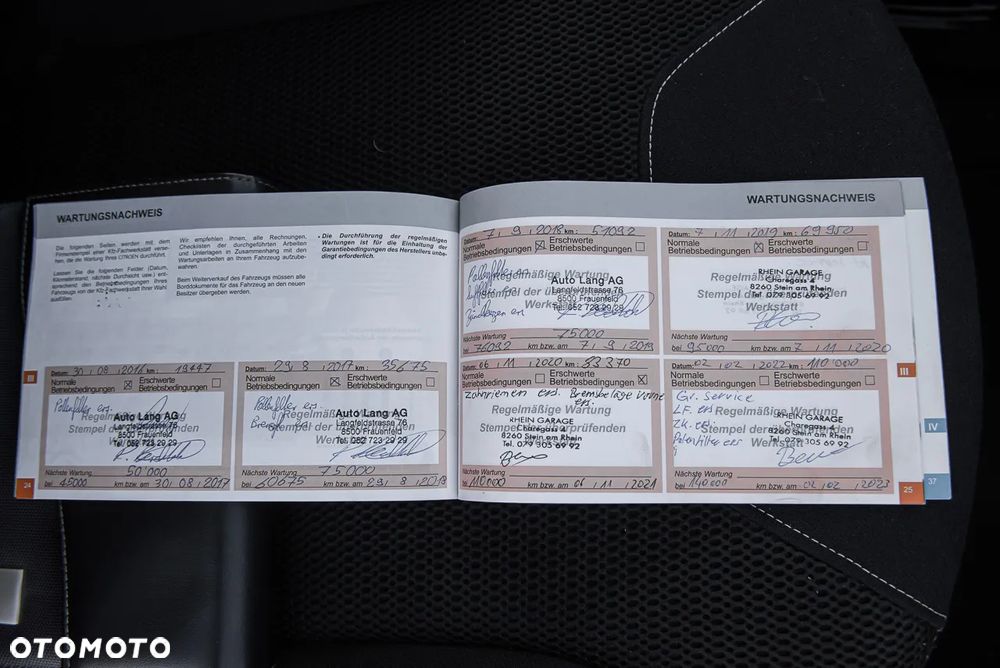 WARTUNGSNACHWEIS
Die folgenden Seiten werden mit dem
Firmenstempel einer Kfz-Fachwerkstatt verse-
hen, die die Wartung Ihres CITROËN durchführt.
Lassen Sie die folgenden Felder (Datum,
Kilometerstand, nächste Durchsicht usw.) ent-
sprechend den Betriebsbedingungen Ihres
Fahrzeugs von der Kfz-Fachwerkstatt Ihrer Wahl
ausfüllen.
Wir empfehlen Ihnen, alle Rechnungen,
Checklisten der durchgeführten Arbeiten
und Unterlagen in Zusammenhang mit den
Wartungsarbeiten an Ihrem Fahrzeug aufzube-
wahren.
Beim Weiterverkauf des Fahrzeugs müssen alle
Borddokumente für das Fahrzeug an den neuen
Besitzer übergeben werden.
• Die Durchführung der regelmäßigen
Wartungen ist für die Einhaltung der
Garantiebedingungen des Herstellers unbe-
dingt erforderlich.
III
Datum: 30 / 08 / 2016 km: 19447
Normale Betriebsbedingungen ☒ Erschwerte Betriebsbedingungen ☐
Pollenfilter ers.
Auto Lang AG
Langfeldstrasse 76
8500 Frauenfeld
Tel. 052 723 29 29
Nächste Wartung 50'000
bei 45000 km bzw. am 30 / 08 / 2017
Datum: 29 / 8 / 2017 km: 35675
Normale Betriebsbedingungen ☒ Erschwerte Betriebsbedingungen ☐
Pollenfilter ers.
Auto Lang AG
Langfeldstrasse 76
8500 Frauenfeld
Tel. 052 723 29 29
Nächste Wartung 75000
bei 60675 km bzw. am 29 / 8 / 2018
24
WARTUNGSNACHWEIS
Datum: 7 / 9 / 2018 km: 51092
Normale Betriebsbedingungen ☒ Erschwerte Betriebsbedingungen ☐
Regelmäßige Wartung
Pollenfilter ers
Luftfilter ers
Zündkerzen ers
Auto Lang AG
Langfeldstrasse 76
8500 Frauenfeld
Tel. 052 723 29 29
Nächste Wartung 75000
bei 76092 km bzw. am 7 / 9 / 2019
Datum: 7 / 11 / 2019 km: 69950
Normale Betriebsbedingungen ☒ Erschwerte Betriebsbedingungen ☐
Regelmäßige Wartung
RHEIN GARAGE
Charegass 4
8260 Stein am Rhein
Tel. 079 305 69 92
Werkstatt
Nächste Wartung
bei 95000 km bzw. am 7 / 11 / 2020
Datum: 06 / 11 / 2020 km: 83370
Normale Betriebsbedingungen ☐ Erschwerte Betriebsbedingungen ☒
Zahnriemen ers. Bremsbeläge vorne
ers.
Regelmäßige Wartung
RHEIN GARAGE
Charegass 4
8260 Stein am Rhein
Tel. 079 305 69 92
Nächste Wartung
bei 110000 km bzw. am 06 / 11 / 2021
Datum: 02 / 02 / 2022 km: 110000
Normale Betriebsbedingungen ☐ Erschwerte Betriebsbedingungen ☐
Gr. Service
LF. ers
ZK. ers.
Polenfilter ers
Regelmäßige Wartung
RHEIN GARAGE
Charegass 4
8260 Stein am Rhein
Tel. 079 305 69 92
Werkstatt
Nächste Wartung
bei 140000 km bzw. am 02 / 02 / 2023
III
IV
25
37
OTOMOTO